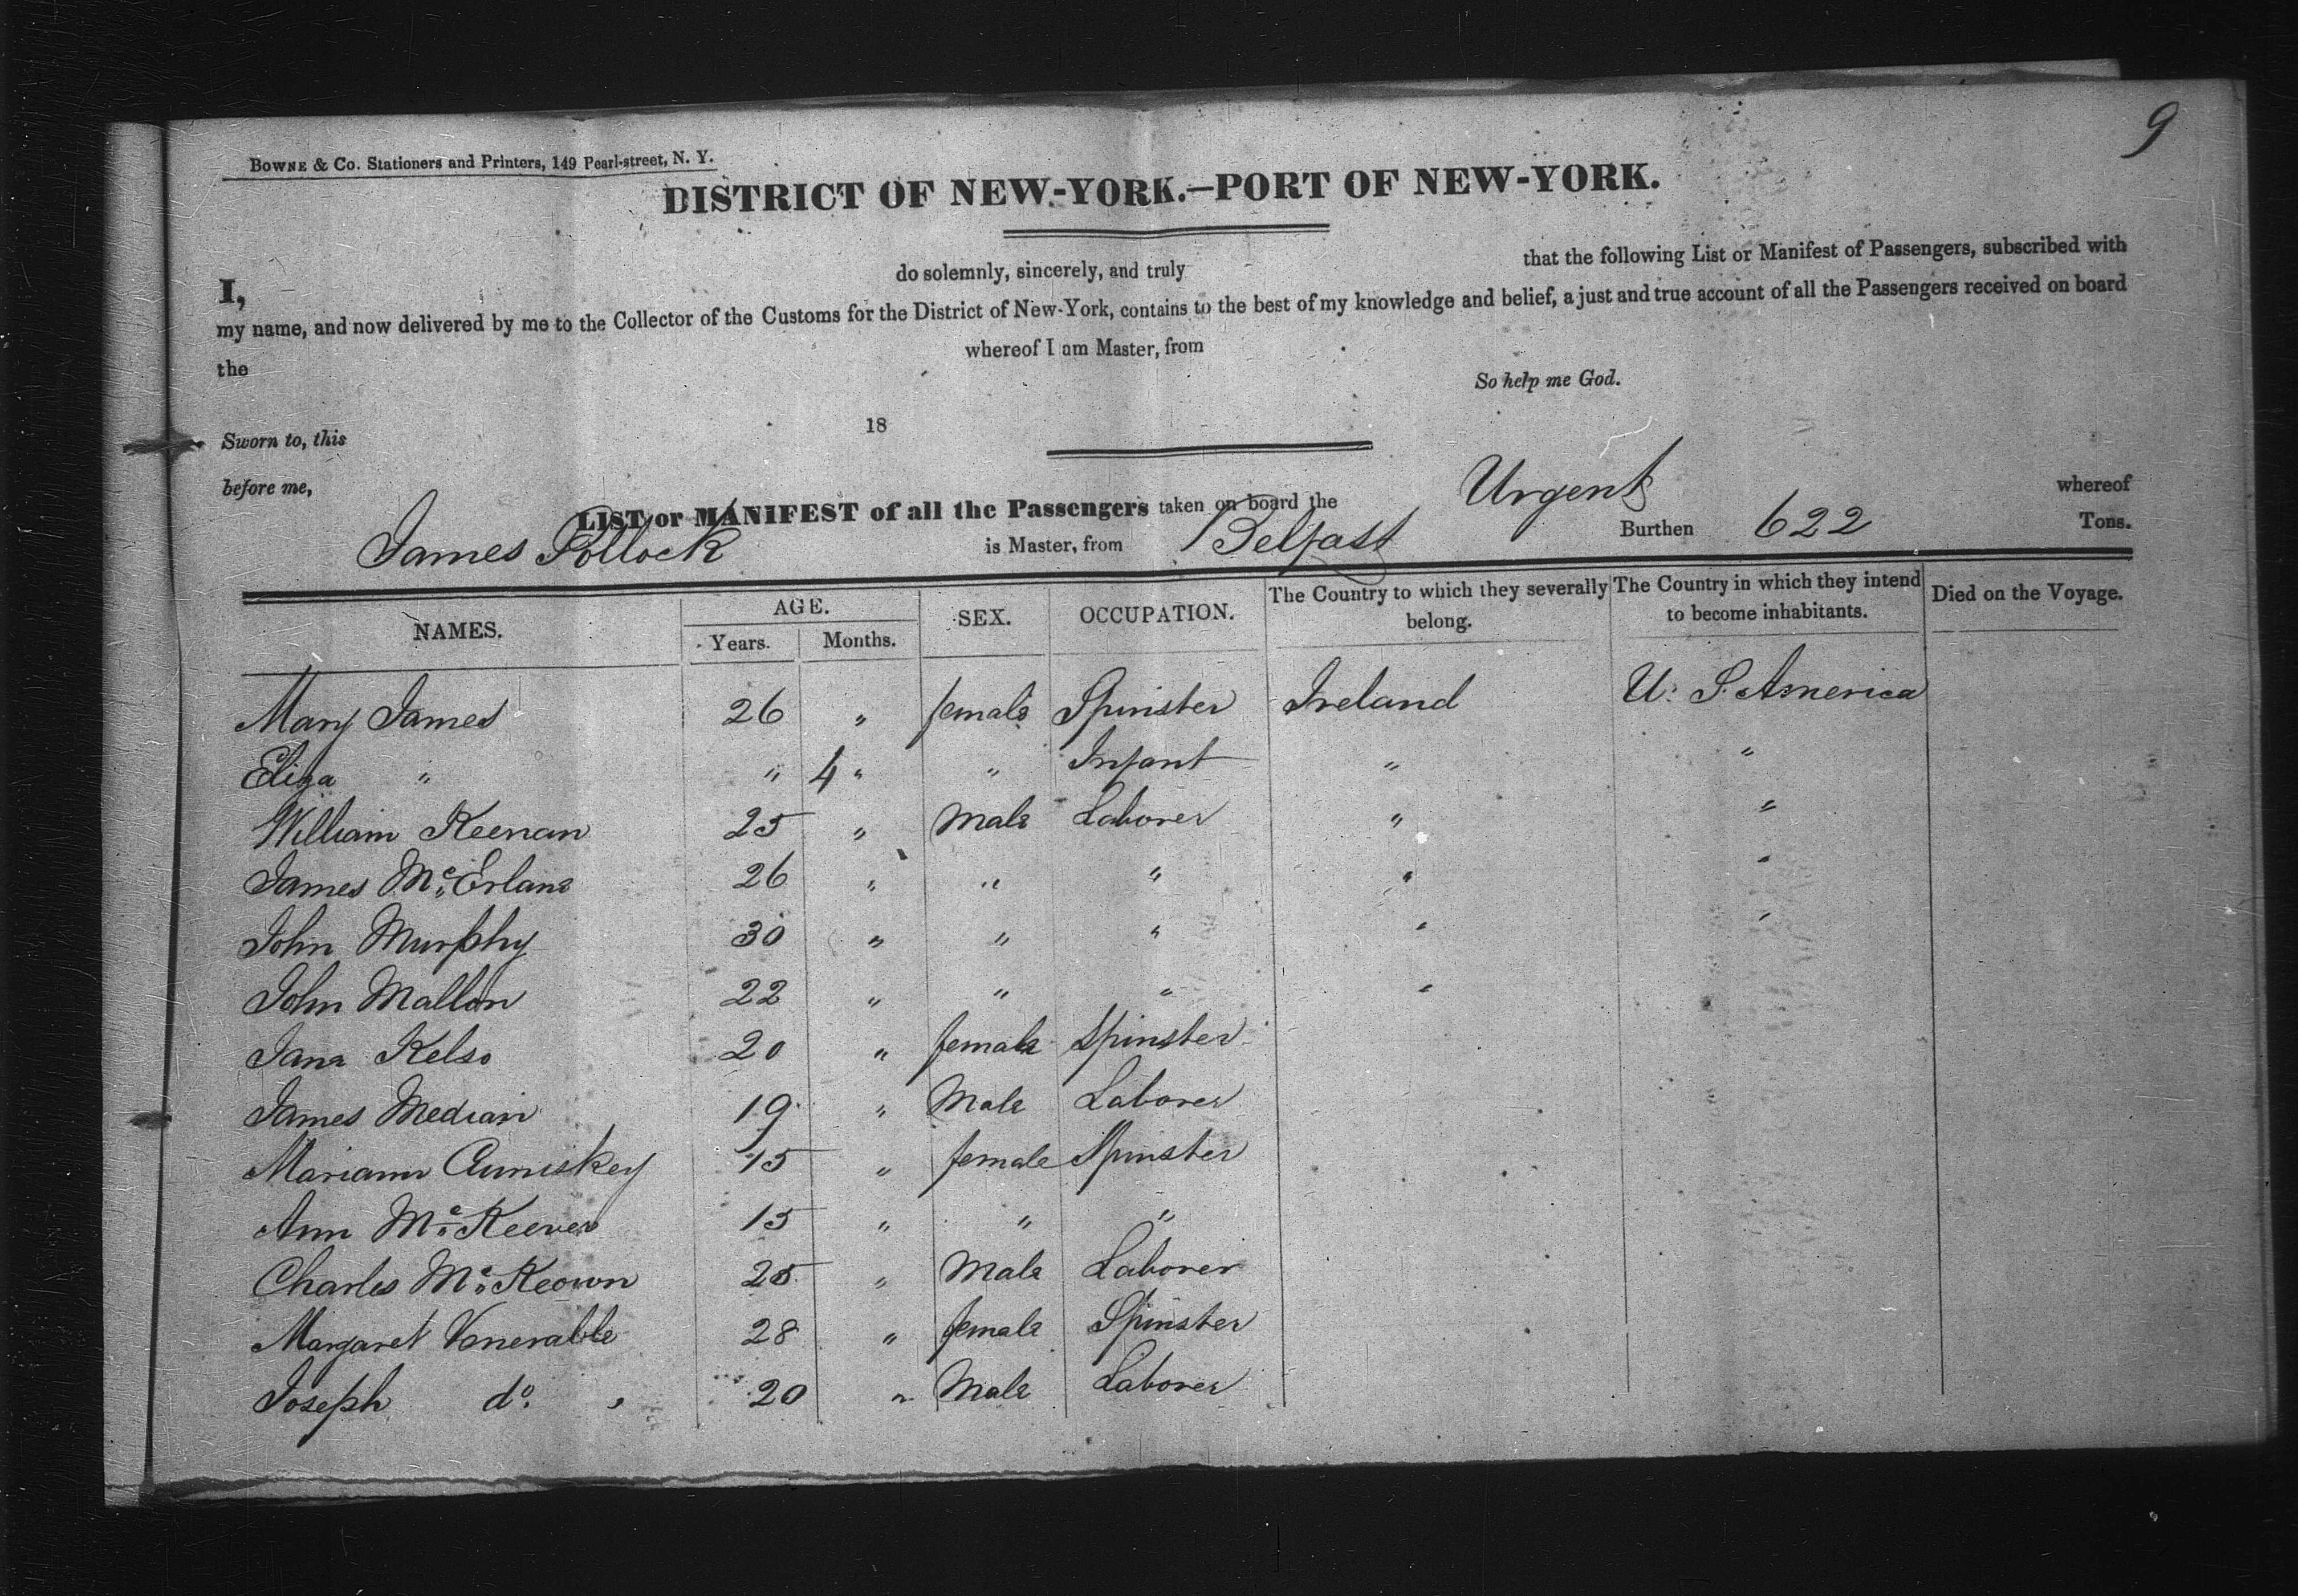 9
BOWNE & Co. Stationers and Printers, 149 Pearl-street, N. Y.
DISTRICT OF NEW-YORK.—PORT OF NEW-YORK.
I, do solemnly, sincerely, and truly that the following List or Manifest of Passengers, subscribed with
my name, and now delivered by me to the Collector of the Customs for the District of New-York, contains to the best of my knowledge and belief, a just and true account of all the Passengers received on board
the whereof I am Master, from
So help me God.
Sworn to, this 18
before me,
LIST or MANIFEST of all the Passengers taken on board the Urgent whereof
James Pollock is Master, from Belfast Burthen 622 Tons.
NAMES. AGE. Years. Months. SEX. OCCUPATION. The Country to which they severally belong. The Country in which they intend to become inhabitants. Died on the Voyage.
Mary James 26 " female Spinster Ireland U. S. America
Eliza " " 4 " " Infant " "
William Keenan 25 " Male Laborer " "
James Mc Erlane 26 " " " " "
John Murphy 30 " " " " "
John Mallon 22 " " " "
Jane Kelso 20 " female Spinster
James Median 19 " Male Laborer
Mariann Cumiskey 15 " female Spinster
Ann Mc Keever 15 " " "
Charles Mc Keown 25 " Male Laborer
Margaret Venerable 28 " female Spinster
Joseph do. 20 " Male Laborer